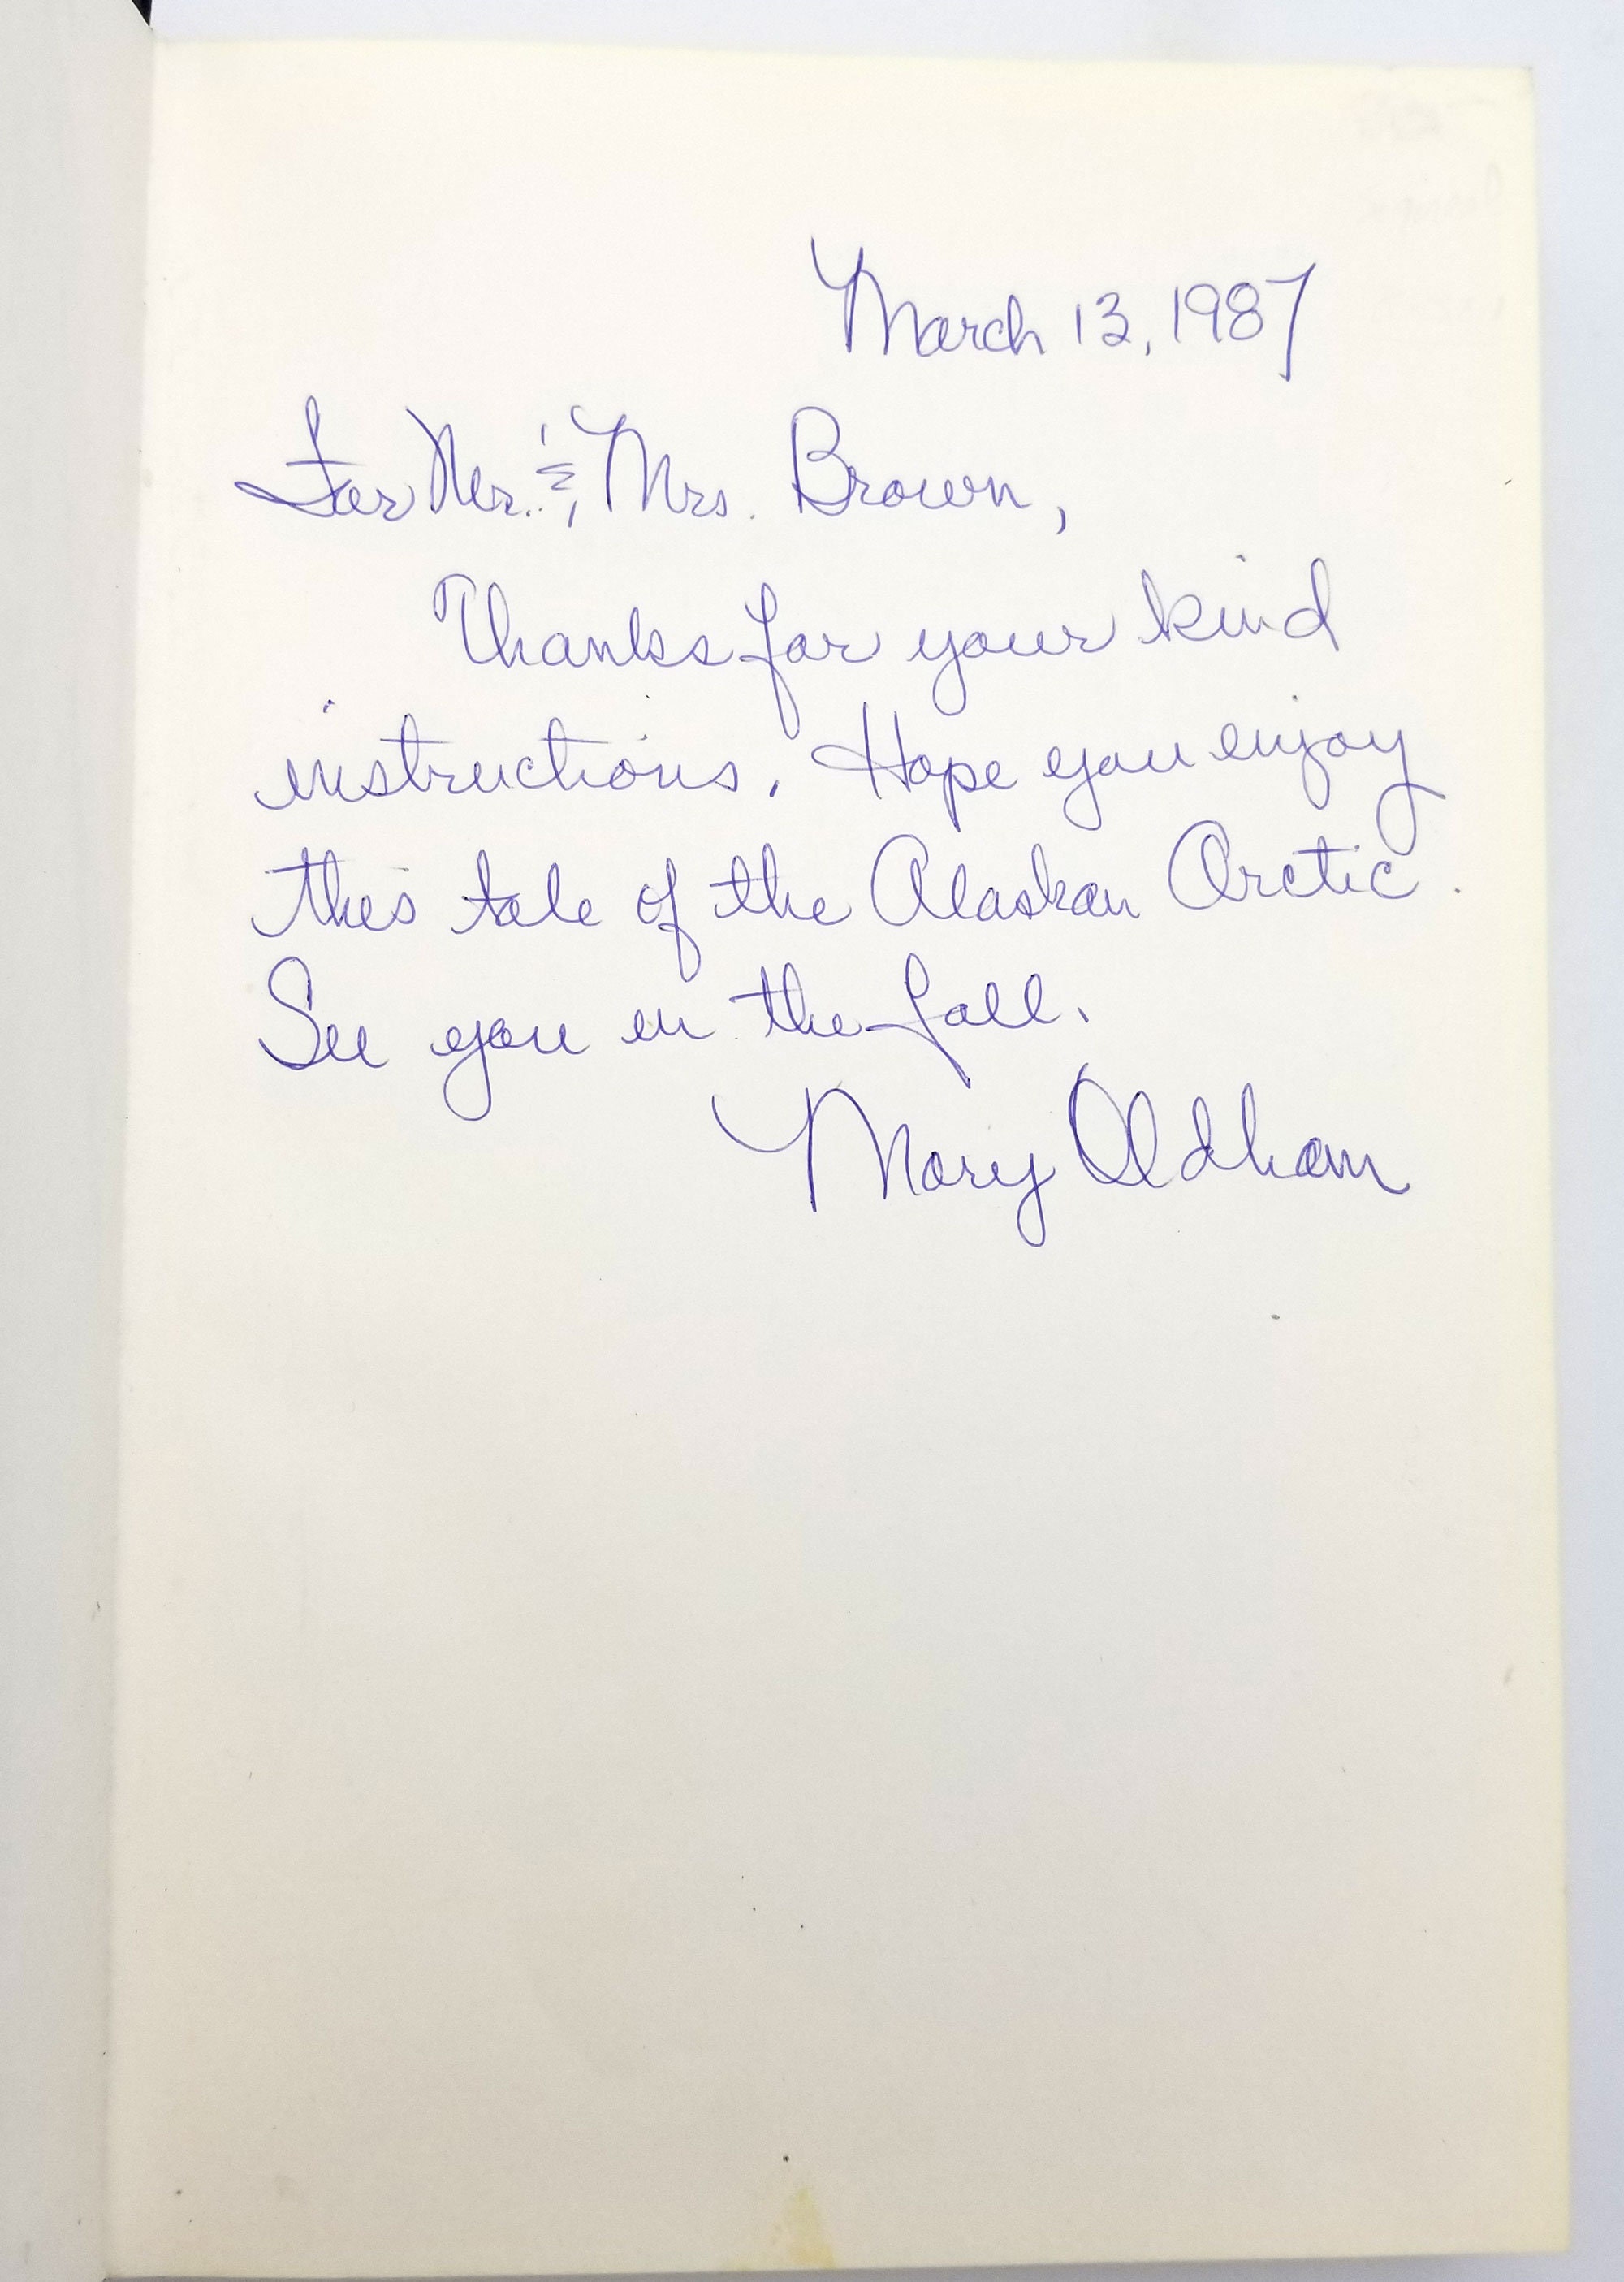 March 13, 1987
For Mr. & Mrs. Brown,
Thanks for your kind
instructions. Hope you enjoy
this tale of the Alaskan Arctic.
See you in the fall.
Mary Oldham